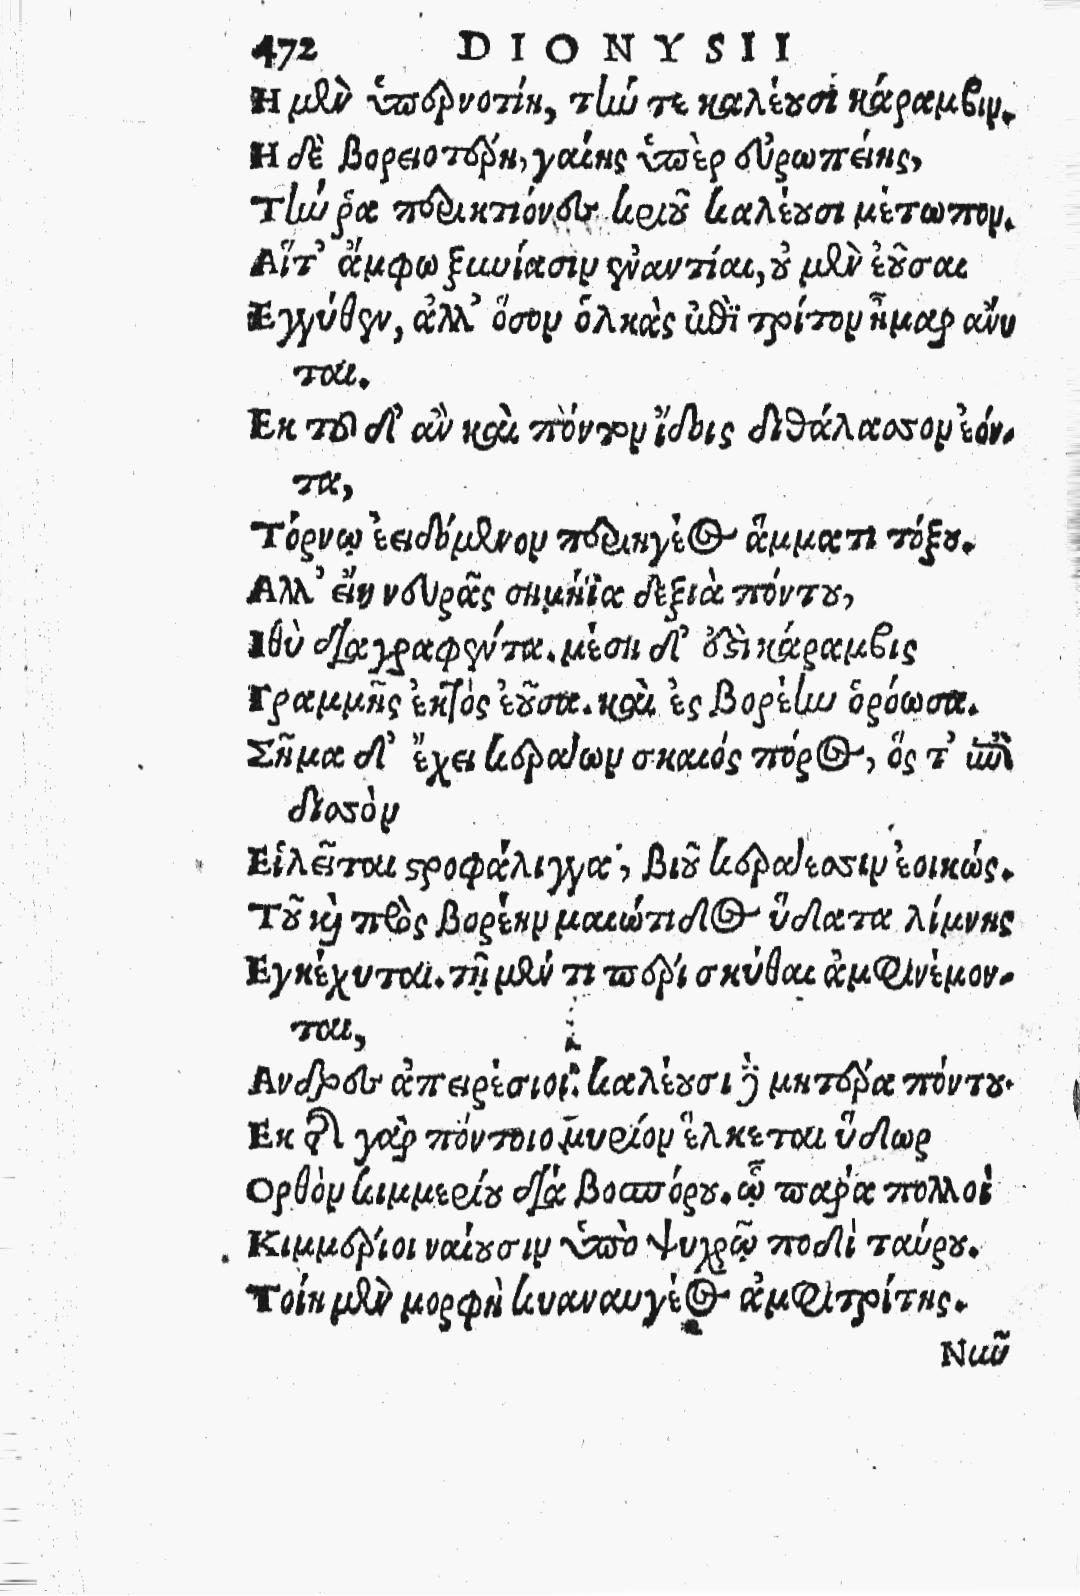 472 DIONYSII
Η μὲν ὑπερνοτίη, τὴν τε καλέουσι κάραμβιν.
Η δὲ βορειοτέρη, γαίης ὑπὲρ εὐρωπείης,
Τὴν ῥα περικτιόνες κριοῦ καλέουσι μέτωπον.
Αἵτ' ἄμφω ξυνίασιν ἐναντίαι, οὐ μὲν ἐοῦσαι
Εγγύθεν, ἀλλ' ὅσον ὁλκὰς ἐπὶ τρίτον ἦμαρ ἀνύ
ται.
Εκ τοῦ δ' ἂν καὶ πόντον ἴδοις διθάλασσον ἐόν-
τα,
Τόρνῳ ἐειδόμενον περιηγέος ἅμματι τόξου.
Αλλ' εἴη νευρᾶς σημήϊα δεξιὰ πόντου,
Ιθὺ διαγραφέντα. μέση δ' οὖσι κάραμβις
Γραμμῆς ἐκτὸς ἐοῦσα. καὶ ἐς βορέην ὁρόωσα.
Σῆμα δ' ἔχει κεράων σκαιός πόρος, ὅς τ' ἐπὶ
δισσὸν
Εἱλεῖται στροφάλιγγα, βιοῦ κεράεσσιν ἐοικώς.
Τοῦ καὶ πρὸς βορέην μαιώτιδος ὕδατα λίμνης
Εγκέχυται. τῇ μέν τι περί σκύθαι ἀμφινέμον-
ται,
Ανδρες ἀπειρέσιοι. καλέουσι δὲ μητέρα πόντου.
Εκ τῆς γὰρ πόντοιο μυρίον ἕλκεται ὕδωρ
Ορθὸν κιμμερίου διὰ βοσπόρου. ᾧ παρὰ πολλοὶ
Κιμμέριοι ναίουσιν ὑπὸ ψυχρῷ ποδὶ ταύρου.
Τοίη μὲν μορφὴ κυαναυγέος ἀμφιτρίτης.
Νῦν